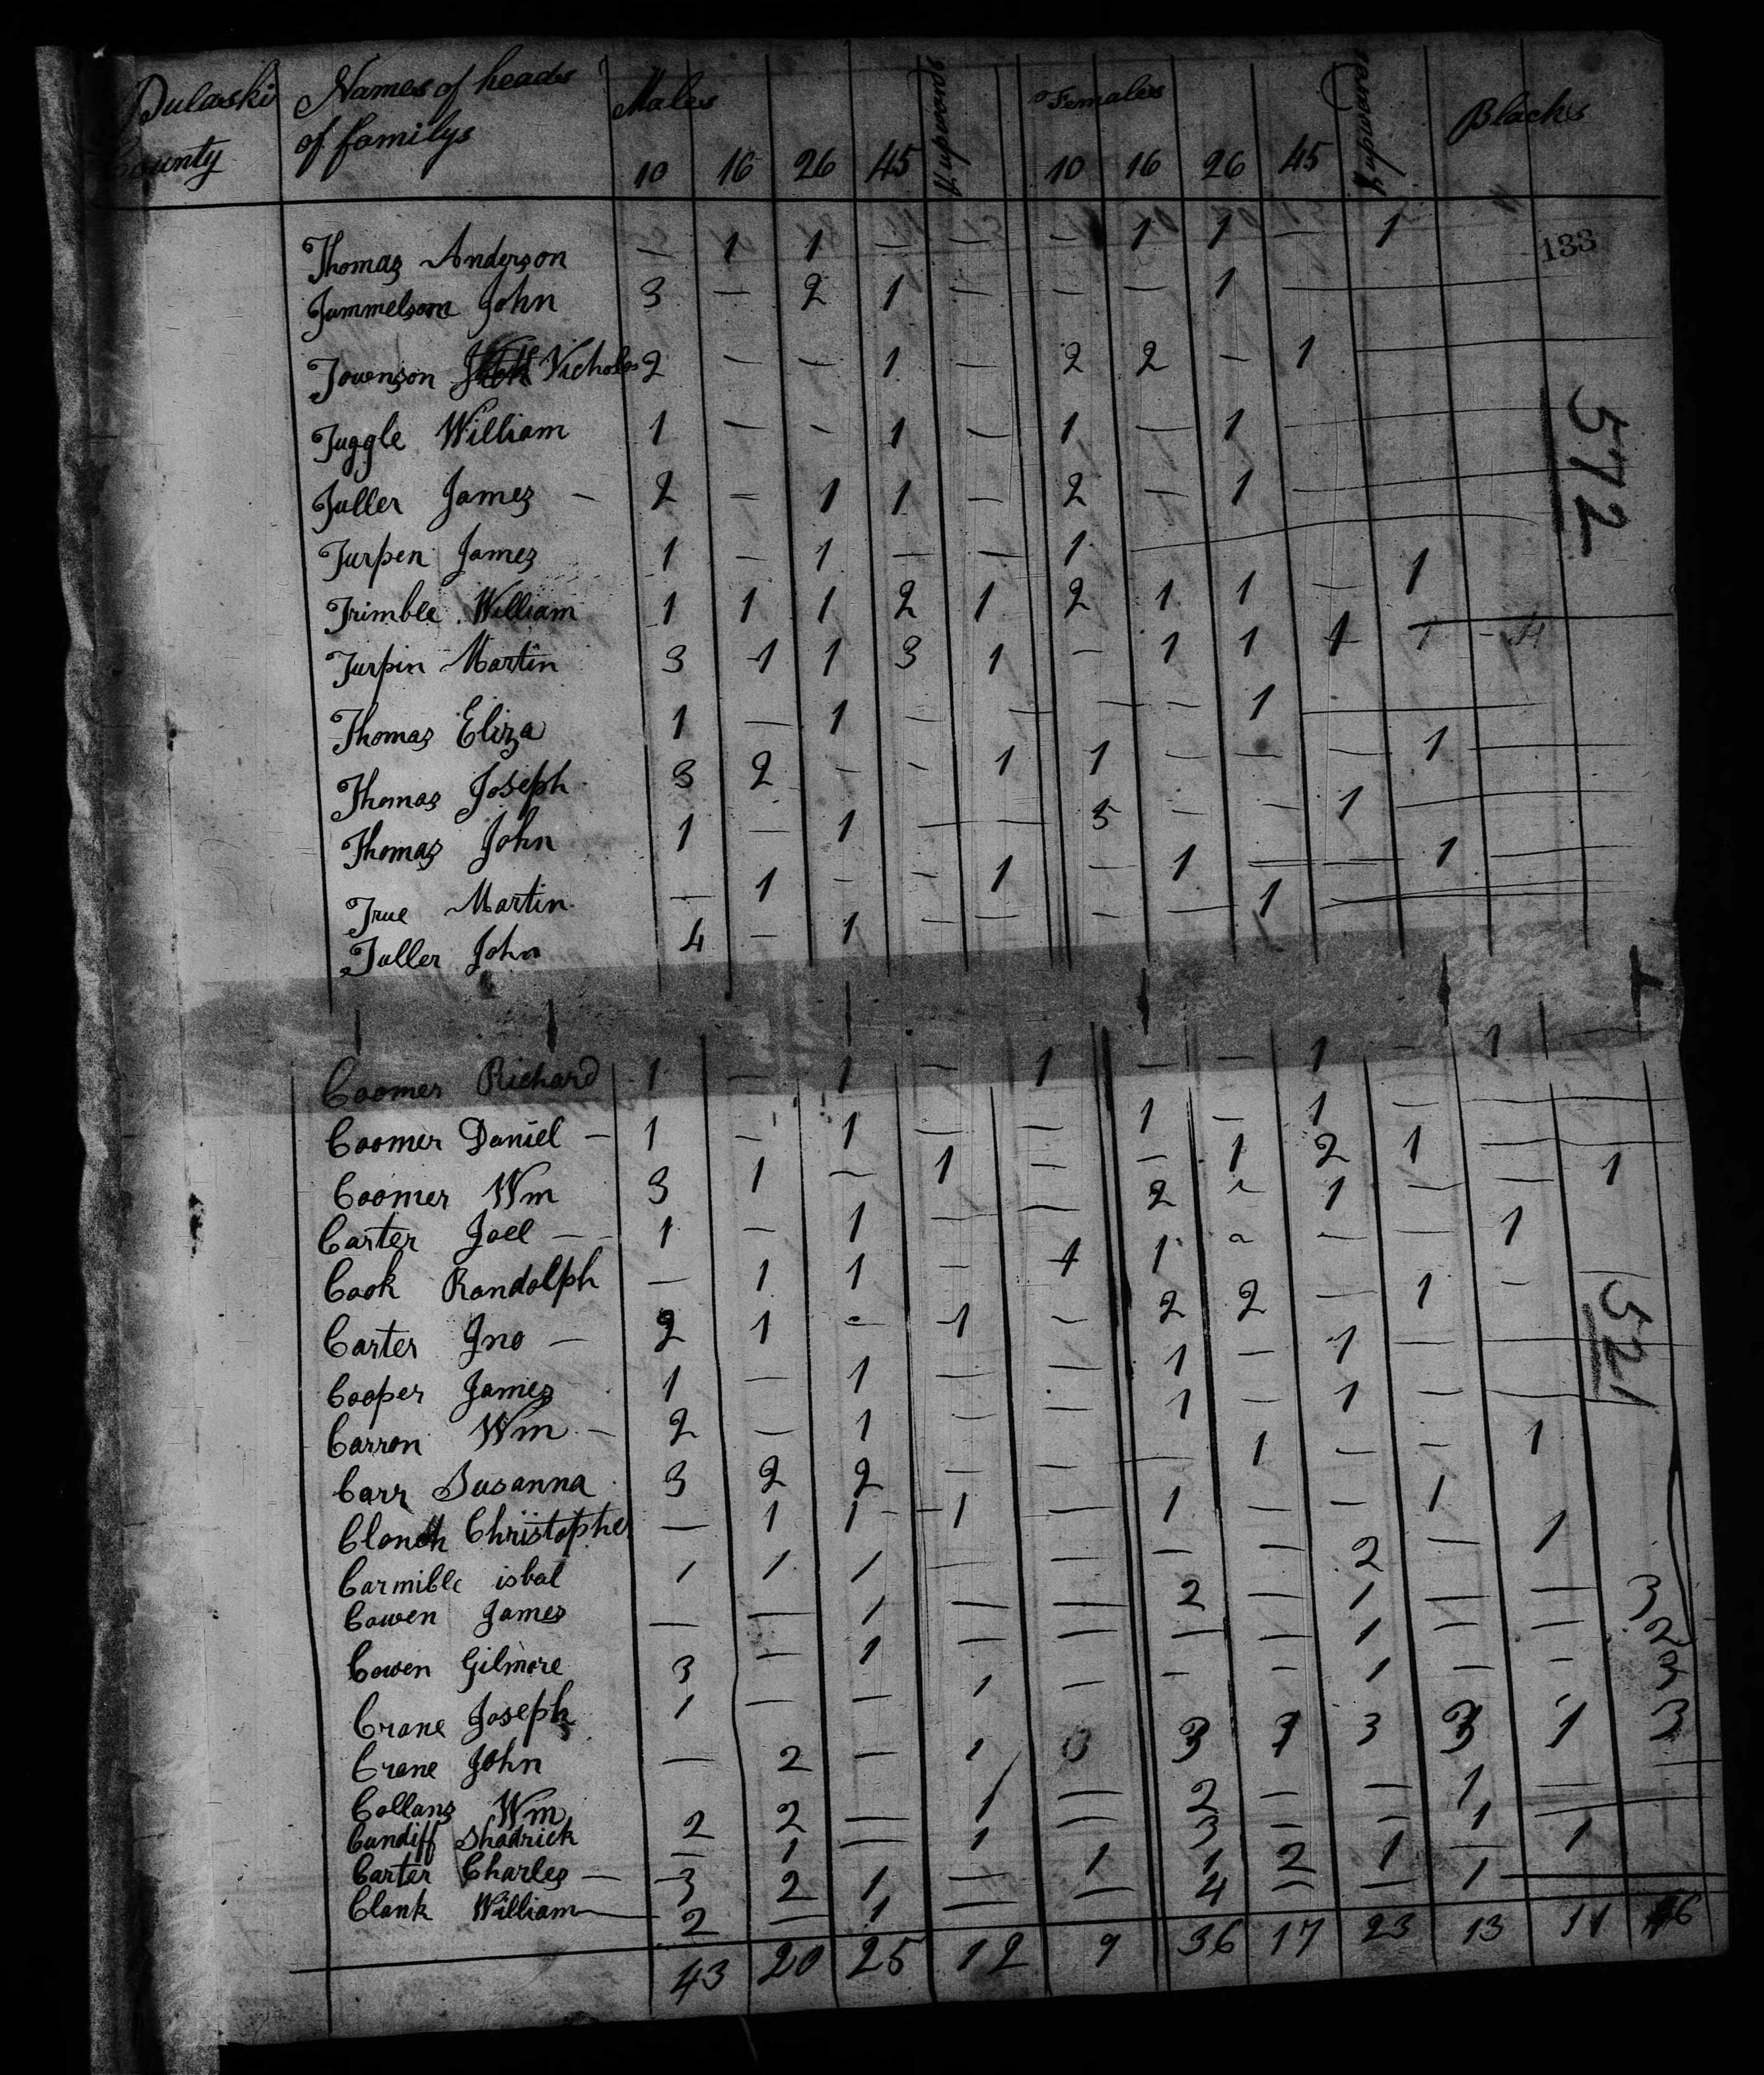 Pulaski County Names of heads of familys Males 10 16 26 45 & upwards Females 10 16 26 45 & upwards Blacks
133
Thomas Anderson — 1 1 — — — 1 1 — 1
Tummelson John 3 — 2 1 — — — 1 —
Townson Nicholas 2 — — 1 — 2 2 — 1 —
Tuggle William 1 — — 1 — 1 — 1 —
Tuller James — 2 — 1 1 — 2 — 1 —
572
Turpen James 1 — 1 — — 1 —
Trimble William 1 1 1 2 1 2 1 1 — 1
Turpin Martin 3 1 1 3 1 — 1 1 1 1 — 4
Thomas Eliza 1 — 1 — — — — 1 —
Thomas Joseph 3 2 — — 1 1 — — — 1 —
Thomas John 1 — 1 — — 5 — — 1 —
True Martin — 1 — — 1 — 1 — — 1 —
Tuller John 4 — 1 — — — — 1 —
Coomer Richard 1 — 1 — 1 — — 1 — 1
Coomer Daniel — 1 — 1 — — 1 — 1 — —
Coomer Wm 3 1 — 1 — — 1 2 1 —
Carter Joel — 1 — 1 — — 2 — 1 — — 1
Cook Randolph — 1 1 — 1 1 — — — 1
Carter Jno — 2 1 — 1 — 2 2 — 1 —
521
Cooper James 1 — 1 — — 1 — 1 — —
Carron Wm — 2 — 1 — — 1 — 1 — —
Carr Susanna 3 2 2 — — — 1 — — 1
Christopher — 1 1 1 — 1 — — 1
Carmible isbal 1 1 1 — — — — 2 — 1
Cowen James — — 1 — — 2 — 1 — — 3
Cowen Gilmore 3 — 1 — — — — 1 — — 2
Crane Joseph 1 — — 1 — — — 1 — —
Crane John — 2 — 1 3 3 3 1 3
Collans Wm 2 2 — 1 — 2 — — 1 —
Cundiff Shadrick — 1 — 1 — 3 — — 1 —
Carter Charles — 3 2 1 — 1 1 2 1 — 1
Clank William — 2 — 1 — — 4 — — 1 —
43 20 25 12 9 36 17 23 13 11